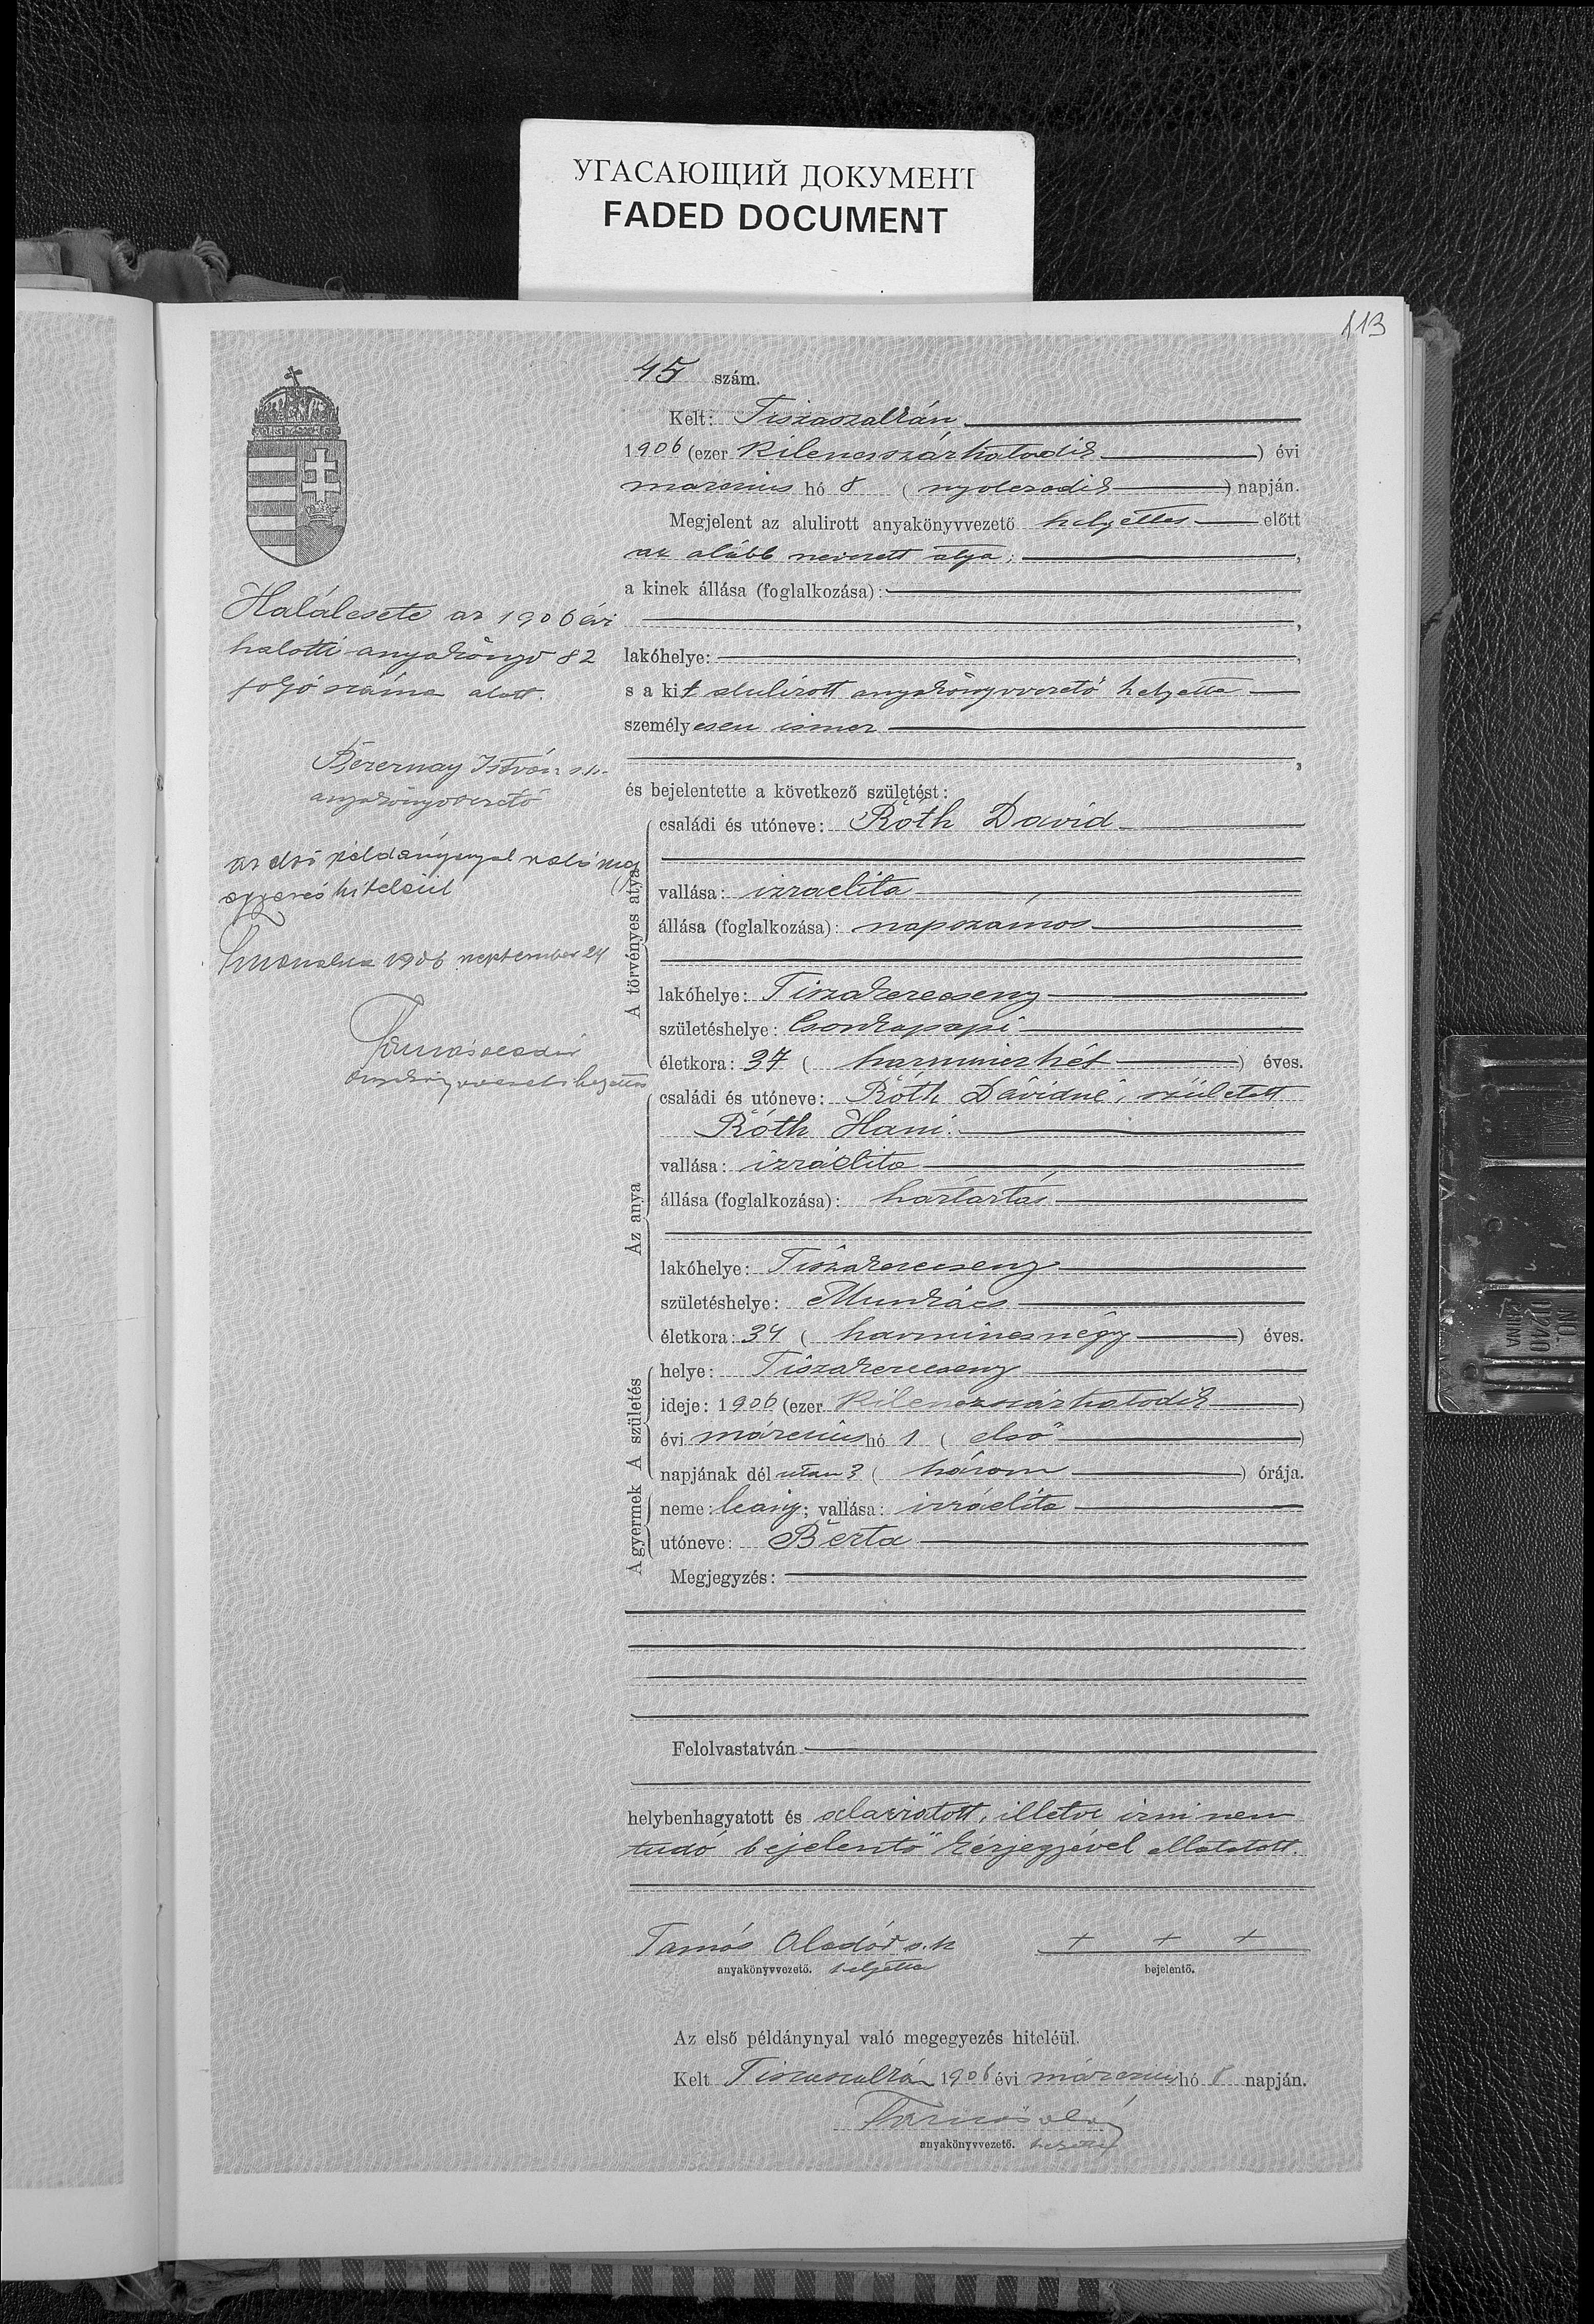 УГАСАЮЩИЙ ДОКУМЕНТ
FADED DOCUMENT
113
45 szám.
Kelt: Tiszaszalkán
1906 (ezer kilenczszázhatodik) évi
márczius hó 8 (nyolczadik) napján.
Megjelent az alulirott anyakönyvvezető helyettes előtt
az alább nevezett atya;
a kinek állása (foglalkozása):
lakóhelye:
s a kit alulírott anyakönyvvezető helyettes
személyesen ismer
és bejelentette a következő születést:
A törvényes atya
családi és utóneve: Róth Dávid
vallása: izraelita
állása (foglalkozása): napszámos
lakóhelye: Tiszakerecseny
születéshelye: Csonkapapi
életkora: 37 (harminczhét) éves.
Az anya
családi és utóneve: Róth Dávidné, született
Róth Hani
vallása: izráelita
állása (foglalkozása): háztartás
lakóhelye: Tiszakerecseny
születéshelye: Munkács
életkora: 34 (harmincznégy) éves.
A születés
helye: Tiszakerecseny
ideje: 1906 (ezer kilenczszázhatodik)
évi márczius hó 1 (első)
napjának dél után 3 (három) órája.
A gyermek
neme: leány; vallása: izráelita
utóneve: Berta
Megjegyzés:
Felolvastatván
helybenhagyatott és aláiratott, illetve irni nem
tudó bejelentő kézjegyével ellátatott.
Tamás Aladár s.k. + + +
anyakönyvvezető. helyettes bejelentő.
Az első példánynyal való megegyezés hiteléül.
Kelt Tiszaszalkán 1906 évi márczius hó 8 napján.
Tamás Aladár
anyakönyvvezető. helyettes
Halálesete az 1906 évi
halotti anyakönyv 82
folyó száma alatt.
István s.k.
anyakönyvvezető
az első példánynyal való meg
egyezés hiteléül
1906 september 24
Tamás Aladár
anyakönyvvezető helyettes
NO.
0240
CHINA